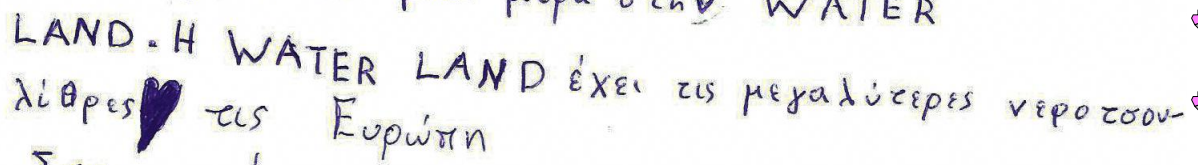 μέρα στην WATER
LAND. Η WATER LAND έχει τις μεγαλύτερες νεροτσου-
λίθρες τις Ευρώπη